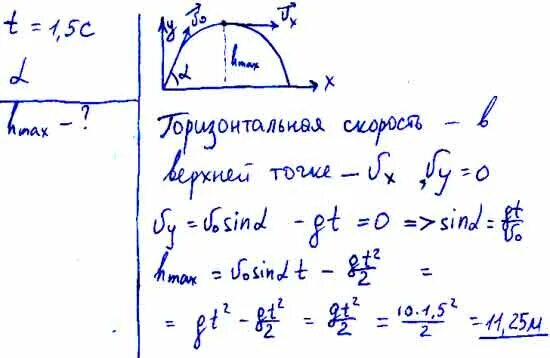 t = 1,5 с
α
hmax – ?
y
v⃗₀
v⃗ₓ
α
hmax
x
Горизонтальная скорость – в
верхней точке – vₓ, vy = 0
vy = v₀sinα – gt = 0 => sinα = gt/v₀
hmax = v₀sinα t – gt²/2 =
= gt² – gt²/2 = gt²/2 = 10·1,5²/2 = 11,25м